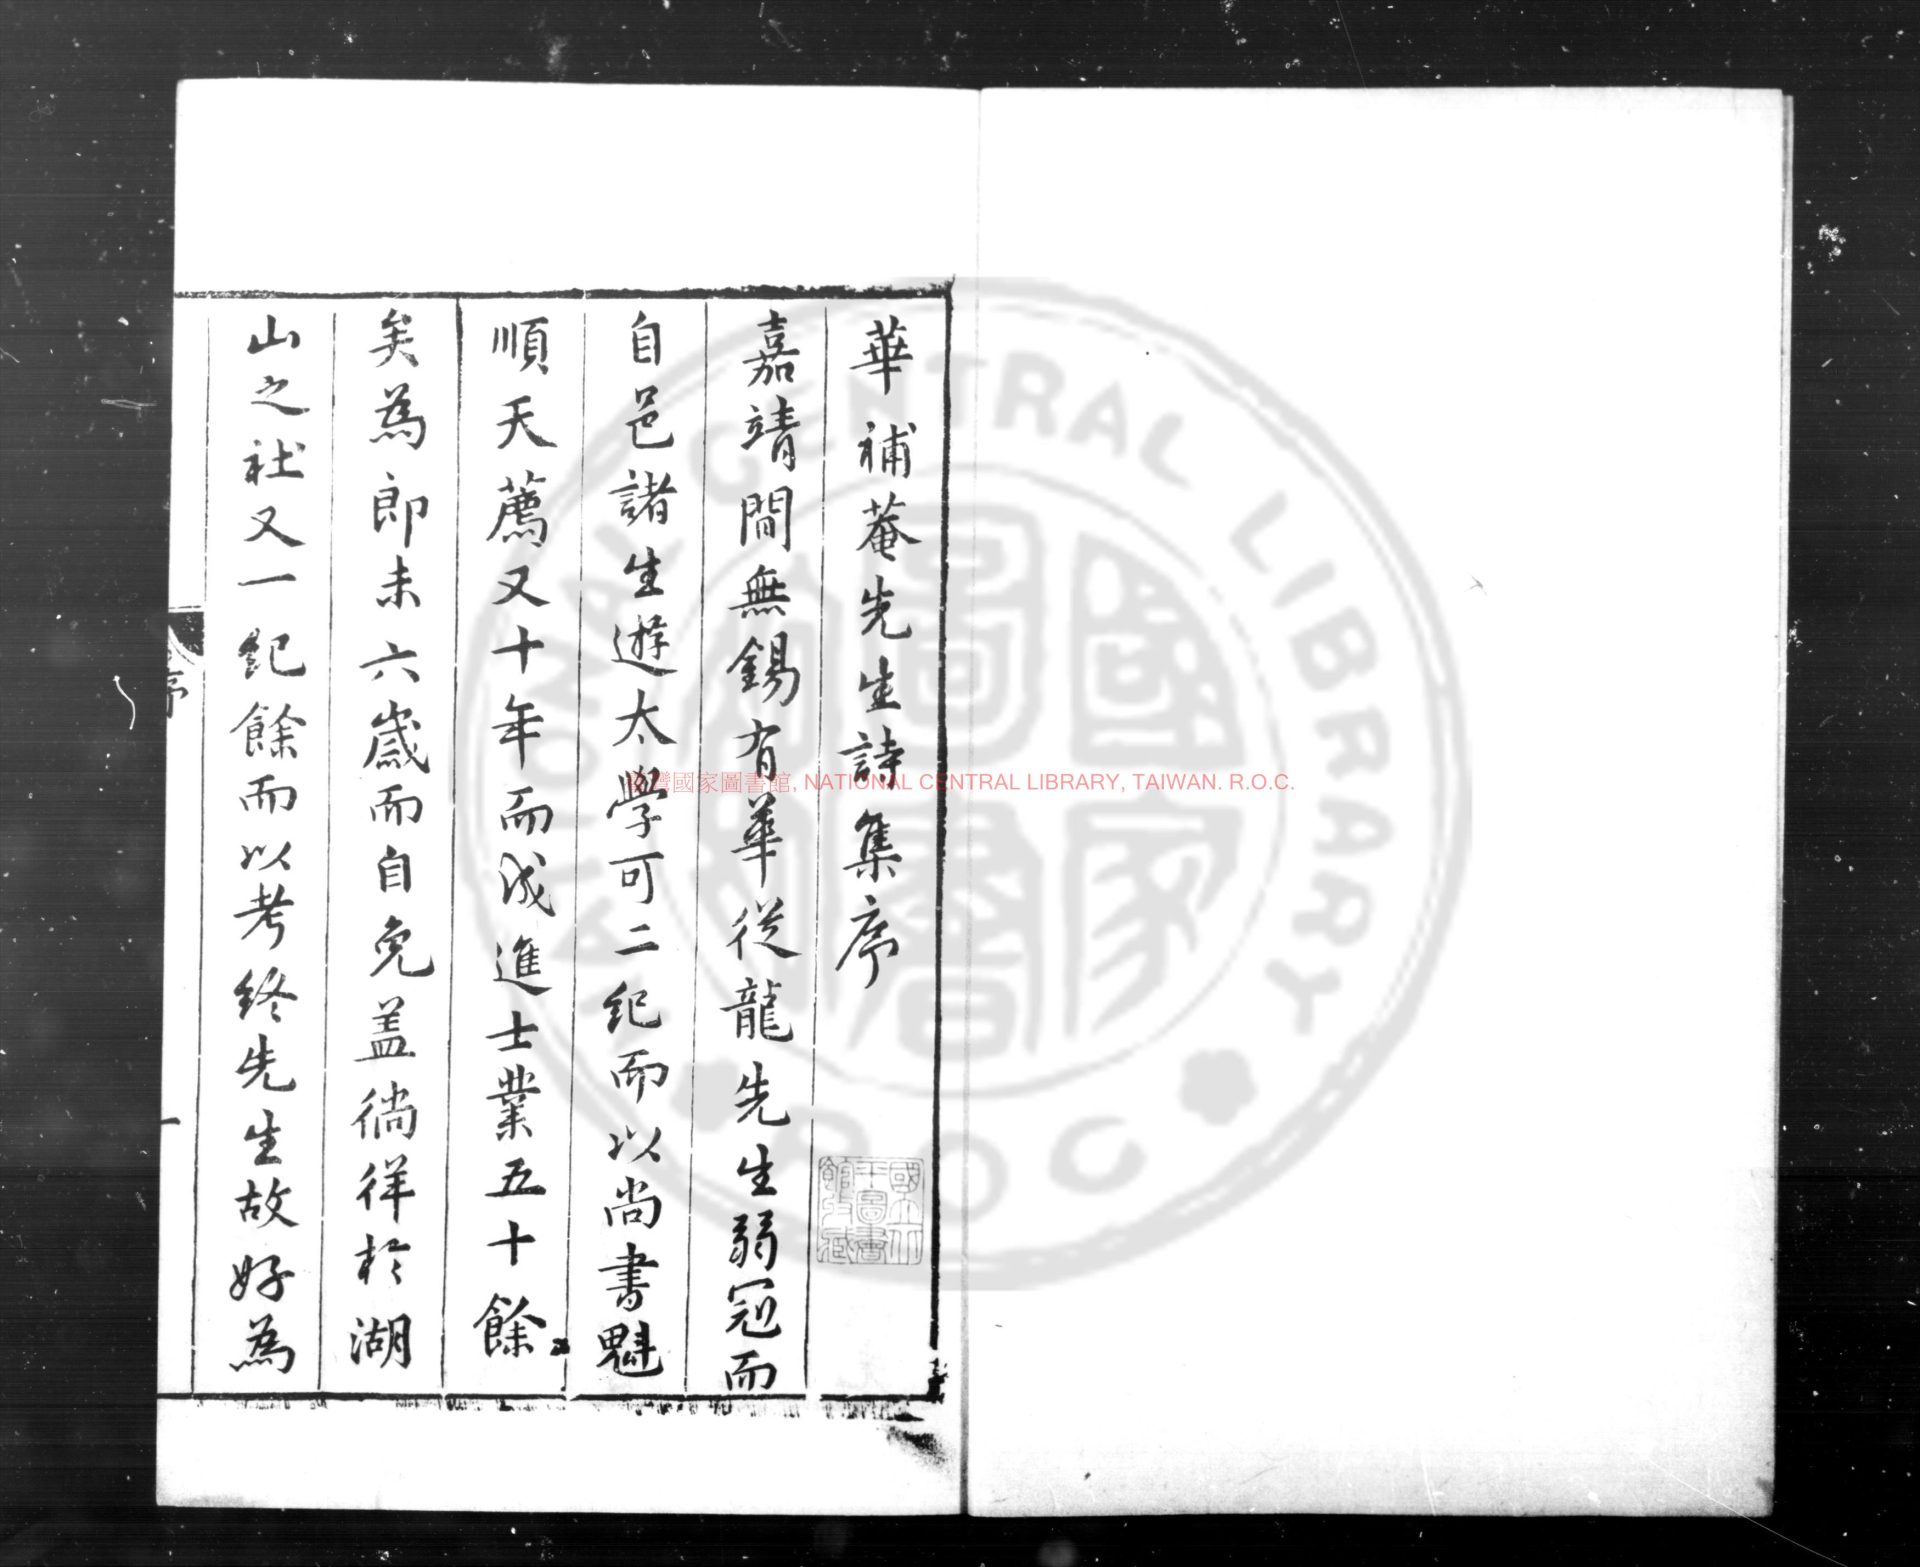 華補菴先生詩集序
嘉靖間無錫有華從龍先生弱冠而
自邑諸生遊太學可二紀而以尚書魁
順天薦又十年而成進士業五十餘
矣為郎未六歲而自免盖徜徉於湖
山之社又一紀餘而以考終先生故好為
序
一
國立中
央圖書
館收藏
臺灣國家圖書館, NATIONAL CENTRAL LIBRARY, TAIWAN. R.O.C.
NATIONAL CENTRAL LIBRARY
R.O.C
國家
圖書